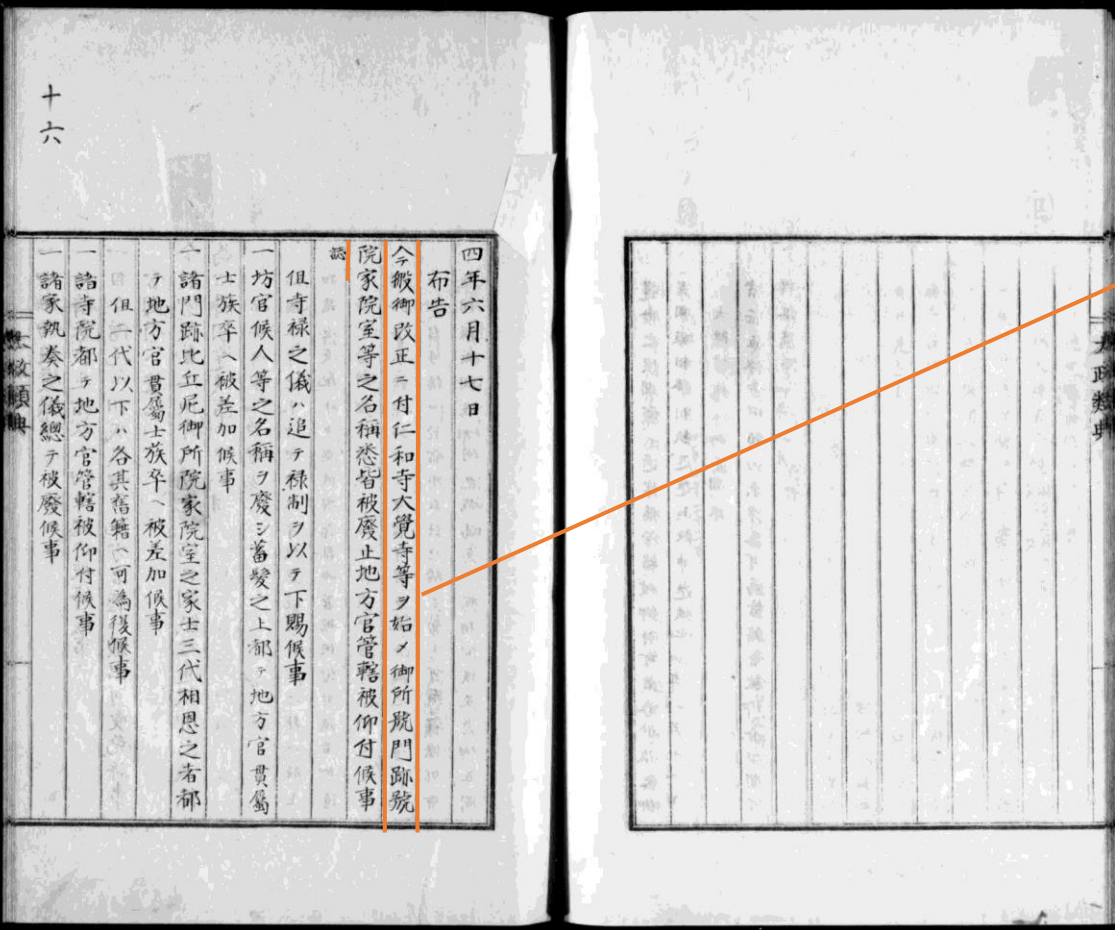 太政類典
四年六月十七日
布告
今般御改正ニ付仁和寺大覺寺等ヲ始メ御所號門跡號
院家院室等之名稱悉皆被廢止地方官管轄被仰付候事
但寺禄之儀ハ追テ禄制ヲ以テ下賜候事
一坊官候人等之名稱ヲ廢シ蓄髮之上都テ地方官貫屬
士族卒ヘ被差加候事
一諸門跡比丘尼御所院家院室之家士三代相恩之者都
テ地方官貫屬士族卒ヘ被差加候事
但二代以下ハ各其舊籍ヘ可為復候事
一諸寺院都テ地方官管轄被仰付候事
一諸家執奏之儀總テ被廢候事
十六